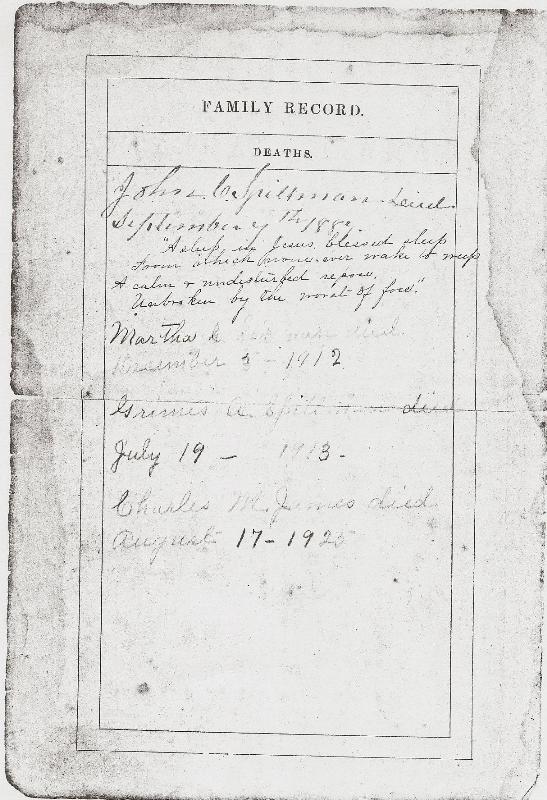 FAMILY RECORD.
DEATHS.
John C. Spillman died
September 7th
"Asleep in Jesus, blessed sleep
From which none ever wake to weep
A calm & undisturbed repose,
Unbroken by the worst of foes".
Martha died.
December 3 - 1912
Grimes A. Spillman died
July 19 - 1913 -
Charles M. James died
August 17 - 1925